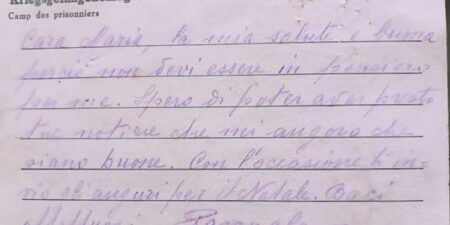 Kriegsgefangenenlag
Camp des prisonniers
Cara Maria, la mia salute è buona
perciò non devi essere in pensiero
per me. Spero di poter aver presto
tue notizie che mi auguro che
siano buone. Con l'occasione ti in-
vio gli auguri per il Natale. Baci
affettuosi Pasquale